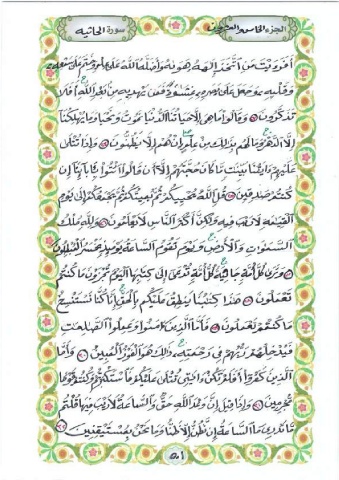 الجزء الخامس والعشرون
سورة الجاثية
أفرءيت من اتخذ إلهه هويه وأضله الله على علم وختم على سمعه
وقلبه وجعل على بصره غشوة فمن يهديه من بعد الله أفلا
تذكرون ٢٣ وقالوا ما هي إلا حياتنا الدنيا نموت ونحيا وما يهلكنا
إلا الدهر وما لهم بذلك من علم إن هم إلا يظنون ٢٤ وإذا تتلى
عليهم ءايتنا بينت ما كان حجتهم إلا أن قالوا ائتوا بـٔابائنا إن
كنتم صدقين ٢٥ قل الله يحييكم ثم يميتكم ثم يجمعكم إلى يوم
القيمة لا ريب فيه ولكن أكثر الناس لا يعلمون ٢٦ ولله ملك
السموت والأرض ويوم تقوم الساعة يومئذ يخسر المبطلون
٢٧ وترى كل أمة جاثية كل أمة تدعى إلى كتبها اليوم تجزون ما كنتم
تعملون ٢٨ هذا كتبنا ينطق عليكم بالحق إنا كنا نستنسخ
ما كنتم تعملون ٢٩ فأما الذين ءامنوا وعملوا الصلحت
فيدخلهم ربهم في رحمته ذلك هو الفوز المبين ٣٠ وأما
الذين كفروا أفلم تكن ءايتي تتلى عليكم فاستكبرتم وكنتم قوما
مجرمين ٣١ وإذا قيل إن وعد الله حق والساعة لا ريب فيها قلتم
ما ندري ما الساعة إن نظن إلا ظنا وما نحن بمستيقنين ٣٢